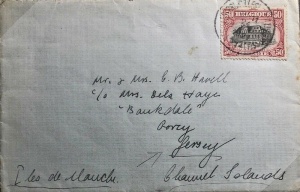 50 BELGIQUE 50
Mr. & Mrs. E. B. Havell
c/o Mrs. Dela Haye
"Bankdale"
Gorey
Jersey
Iles de Manche. Channel Islands